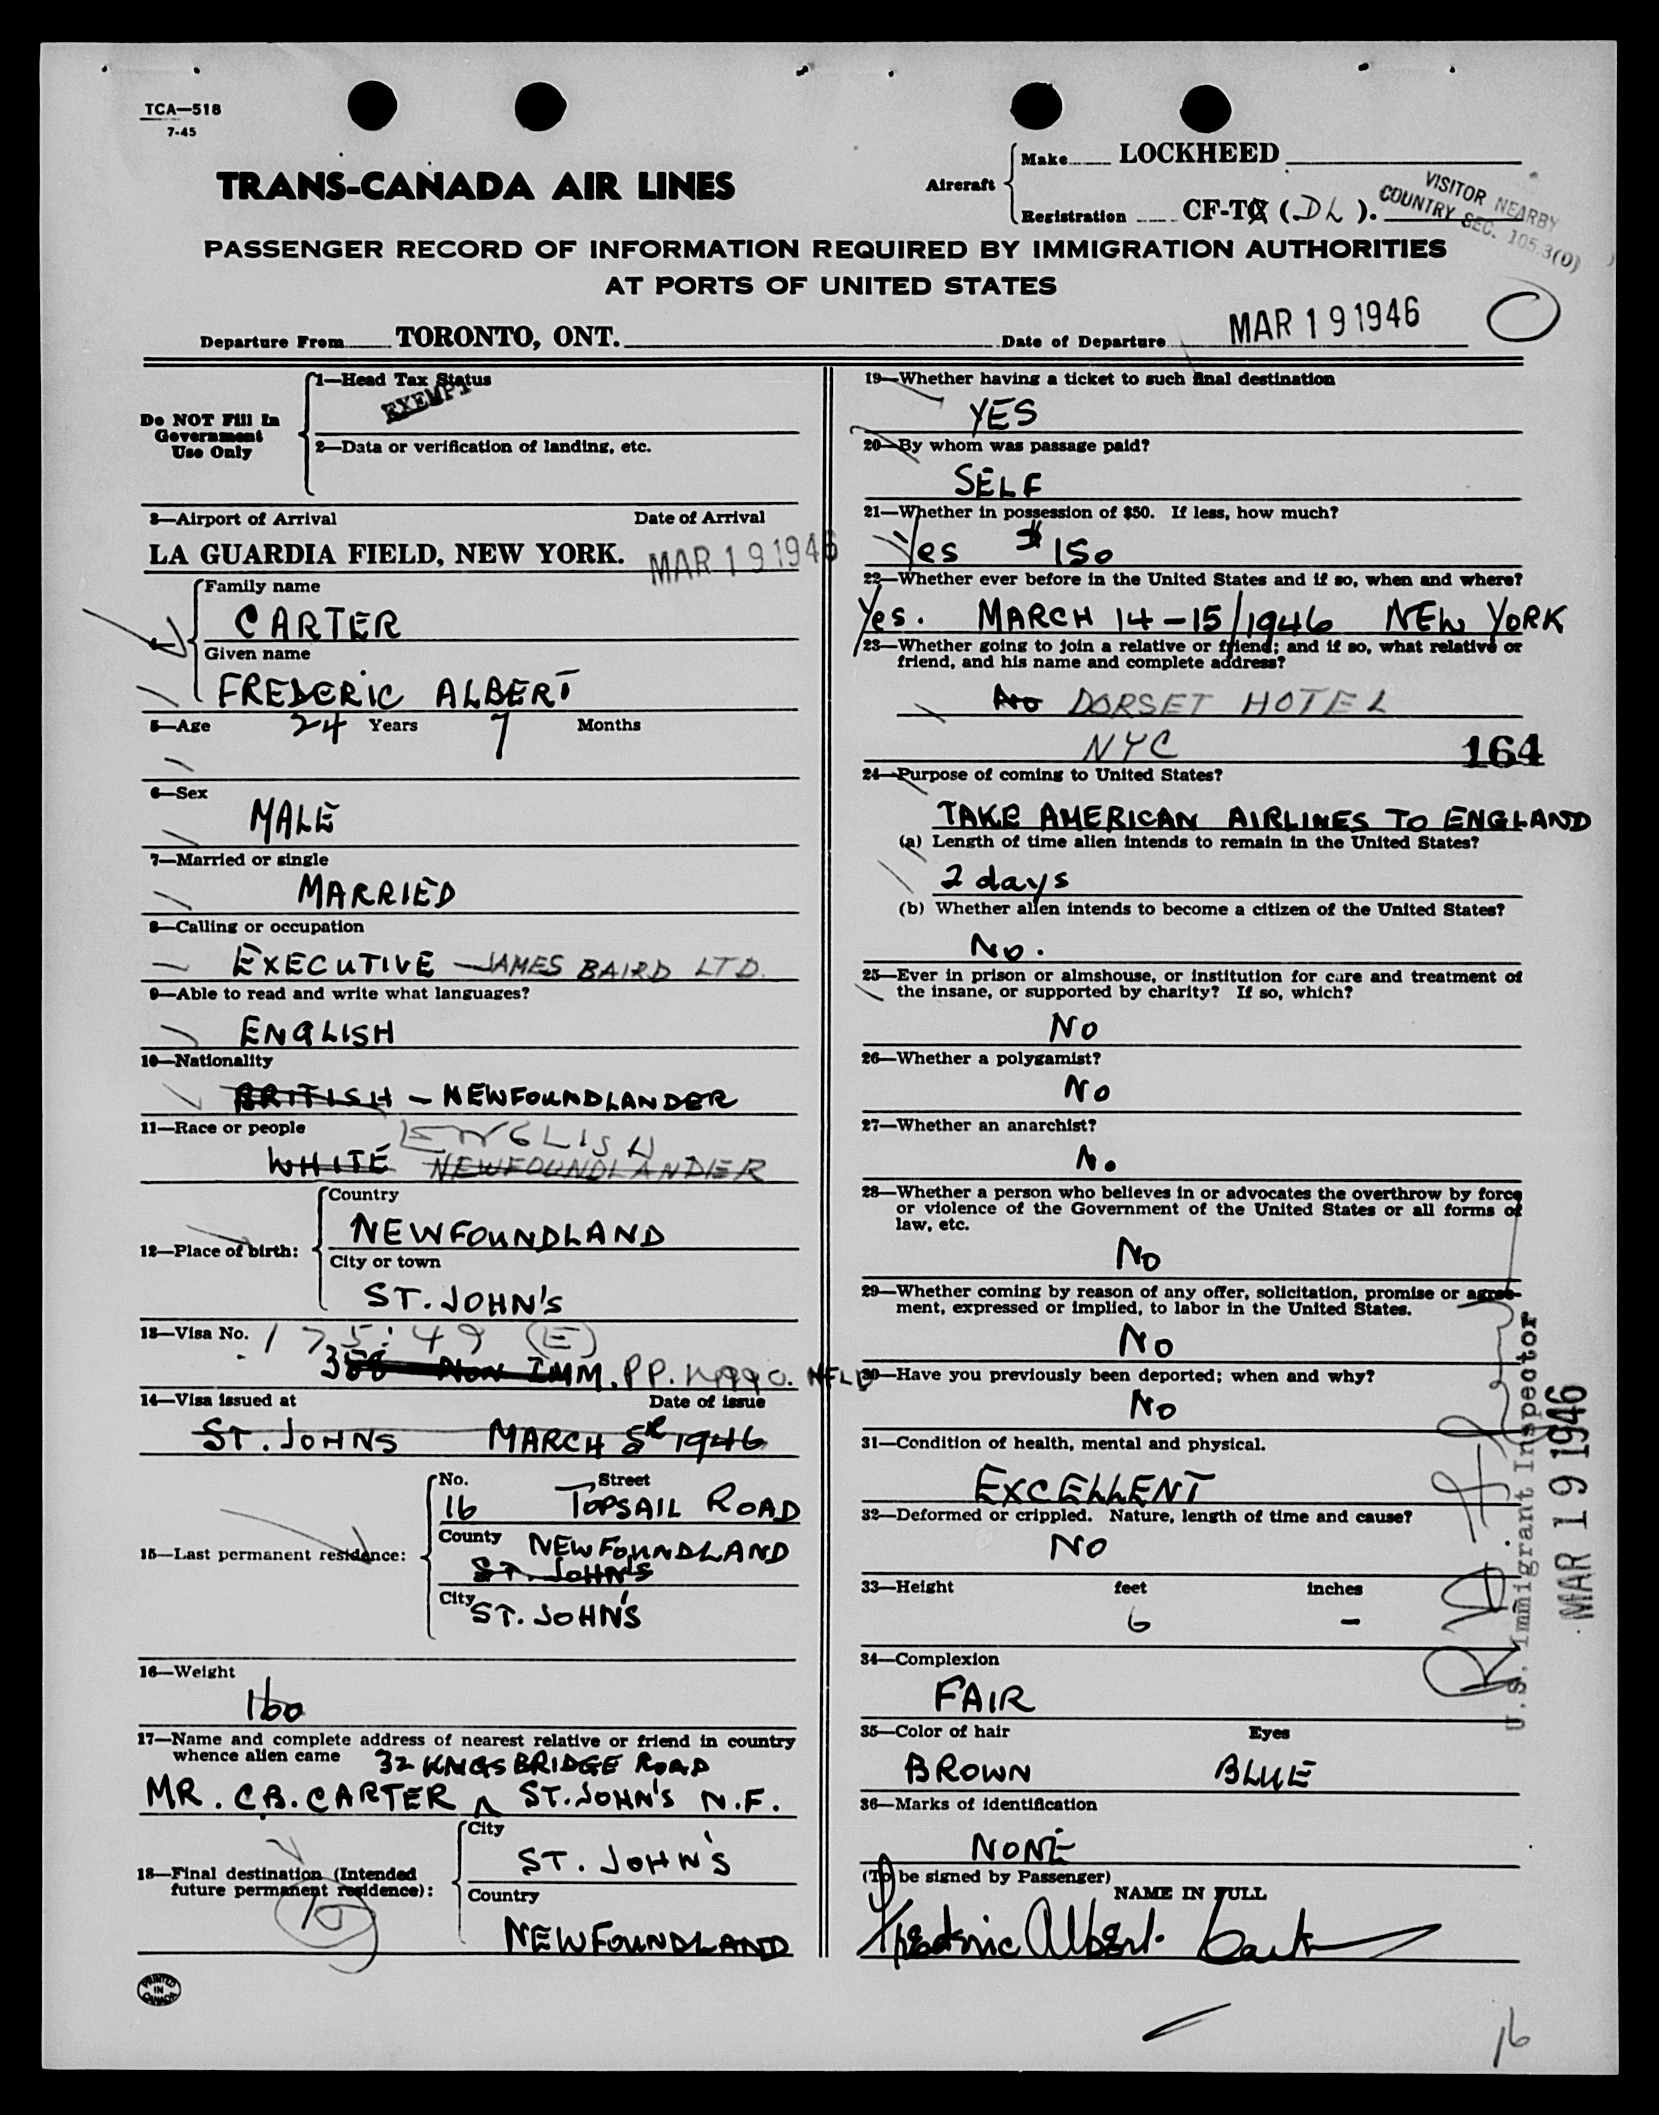 TCA—518
7-45
TRANS-CANADA AIR LINES
Aircraft
Make LOCKHEED
Registration CF-TC (DL).
VISITOR NEARBY
COUNTRY SEC. 105.3(0)
PASSENGER RECORD OF INFORMATION REQUIRED BY IMMIGRATION AUTHORITIES
AT PORTS OF UNITED STATES
Departure From TORONTO, ONT. Date of Departure MAR 19 1946
Do NOT Fill In
Government
Use Only
1—Head Tax Status
EXEMPT
2—Data or verification of landing, etc.
3—Airport of Arrival Date of Arrival
LA GUARDIA FIELD, NEW YORK. MAR 19 1946
Family name
CARTER
Given name
FREDERIC ALBERT
5—Age 24 Years 7 Months
6—Sex
MALE
7—Married or single
MARRIED
8—Calling or occupation
EXECUTIVE - JAMES BAIRD LTD.
9—Able to read and write what languages?
ENGLISH
10—Nationality
BRITISH - NEWFOUNDLANDER
11—Race or people
ENGLISH
WHITE NEWFOUNDLANDER
12—Place of birth:
Country
NEWFOUNDLAND
City or town
ST. JOHN'S
13—Visa No. 175:49 (E)
NON IMM. PP. NFLD
14—Visa issued at Date of issue
ST. JOHNS MARCH 5 1946
15—Last permanent residence:
No. Street
16 TOPSAIL ROAD
County NEWFOUNDLAND
ST. JOHN'S
City ST. JOHN'S
16—Weight
160
17—Name and complete address of nearest relative or friend in country
whence alien came 32 KNGSBRIDGE ROAD
MR. C.B. CARTER ST. JOHN'S N.F.
18—Final destination (Intended
future permanent residence):
City
ST. JOHN'S
Country
NEWFOUNDLAND
PRINTED
IN
CANADA
19—Whether having a ticket to such final destination
YES
20—By whom was passage paid?
SELF
21—Whether in possession of $50. If less, how much?
Yes $150
22—Whether ever before in the United States and if so, when and where?
Yes. MARCH 14-15/1946 NEW YORK
23—Whether going to join a relative or friend; and if so, what relative or
friend, and his name and complete address?
No DORSET HOTEL
NYC 164
24—Purpose of coming to United States?
TAKE AMERICAN AIRLINES TO ENGLAND
(a) Length of time alien intends to remain in the United States?
2 days
(b) Whether alien intends to become a citizen of the United States?
No.
25—Ever in prison or almshouse, or institution for care and treatment of
the insane, or supported by charity? If so, which?
No
26—Whether a polygamist?
No
27—Whether an anarchist?
No
28—Whether a person who believes in or advocates the overthrow by force
or violence of the Government of the United States or all forms of
law, etc.
No
29—Whether coming by reason of any offer, solicitation, promise or agree-
ment, expressed or implied, to labor in the United States.
No
30—Have you previously been deported; when and why?
No
31—Condition of health, mental and physical.
EXCELLENT
32—Deformed or crippled. Nature, length of time and cause?
No
33—Height feet inches
6 -
34—Complexion
FAIR
35—Color of hair Eyes
BROWN BLUE
36—Marks of identification
NONE
(To be signed by Passenger)
NAME IN FULL
Frederic Albert Carter
U.S. Immigrant Inspector
MAR 19 1946
16